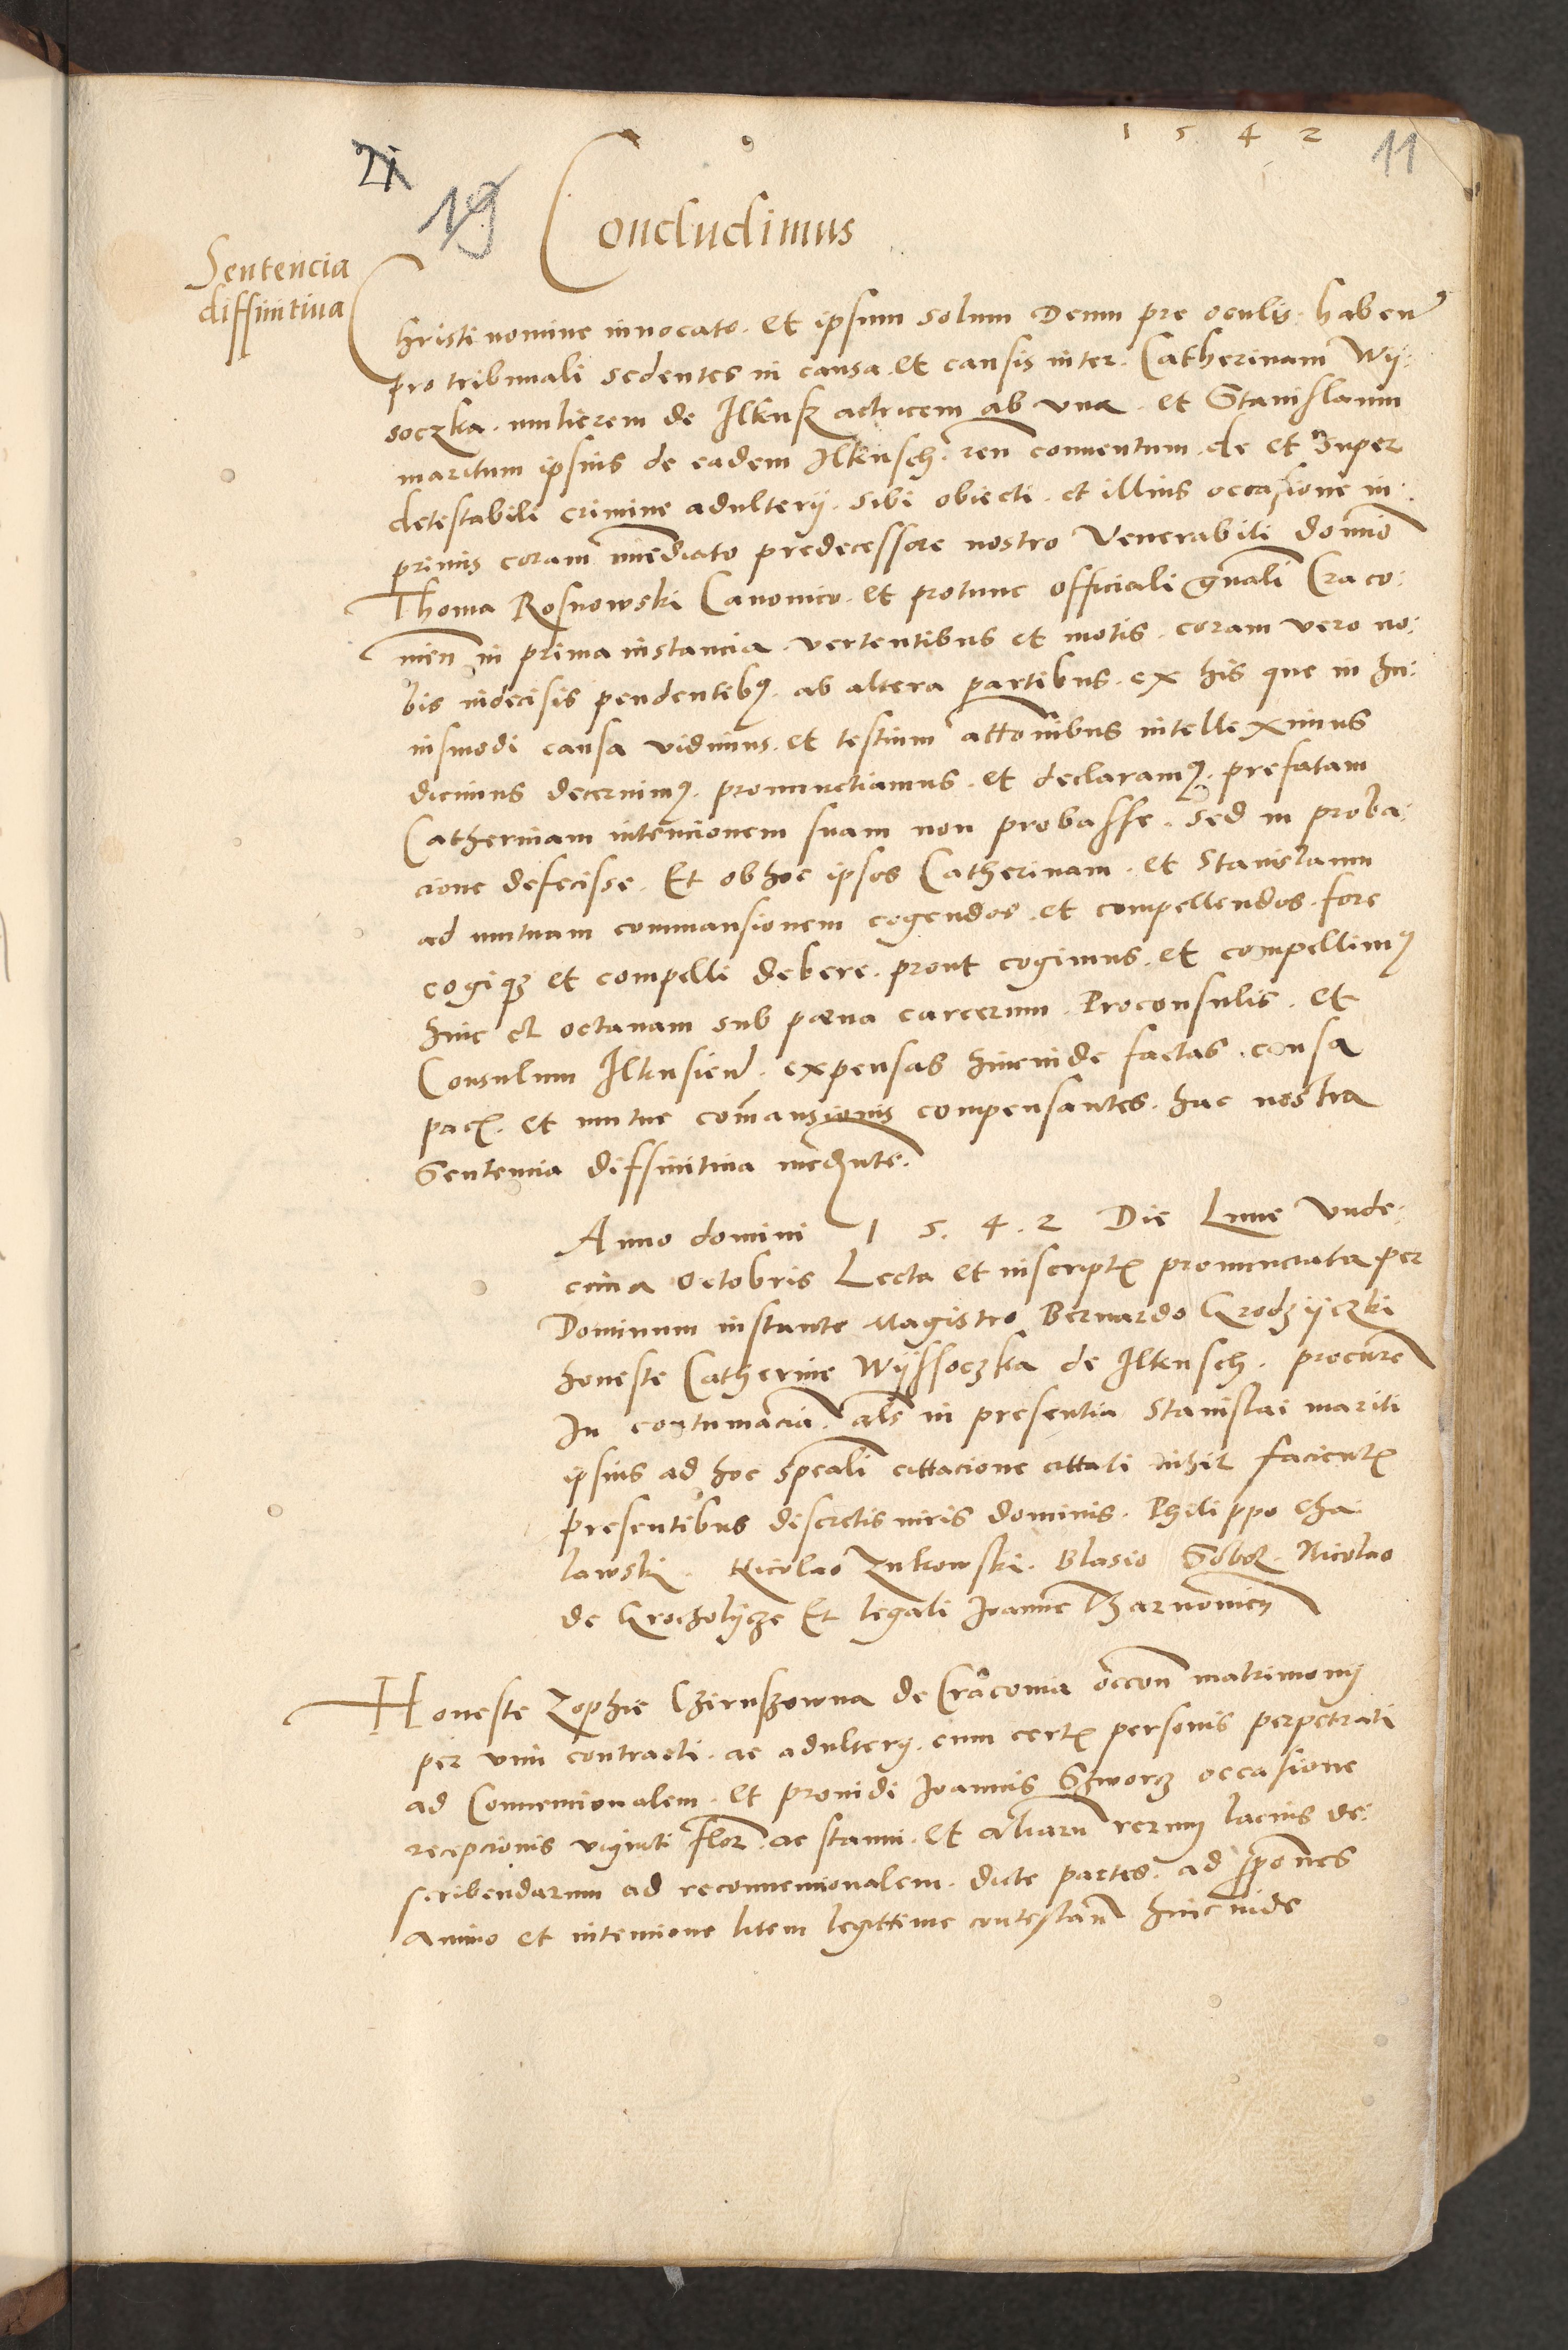 1 5 4 2
11
21
19
Concludimus
Sentencia
diffinitiua
Christi nomine innocato. et ipsum solum Deum pre oculis. haben
pro tribunali sedentes in causa. et causis inter. Catherinam Wy:
soczka. mulierem de Ilkusz actricem ab vna. et Stanislaum
maritum ipsius de eadem Ilkusch. reu conuentum. de et super
detestabili crimine adulterij. sibi obiecti. et illius occasione in:
primis coram imediato predecessore nostro Venerabili domino
Thoma Rosnowski Canonico. et protunc officiali gnali Craco:
uien in prima instancia. vertentibus et motis. coram vero no:
bis indecisis pendentibus. ab altera partibus. ex his que in hu:
iusmodi causa vidimus. et testium attonibus intelleximus
dicimus decernimus. pronunctiamus. et declaramus. prefatam
Catherinam intencionem suam non probasse. sed in proba:
cione defecisse. Et ob hoc ipsos Catherinam. et Stanislaum
ad mutuam commansionem cogendos. et compellendos. fore
cogique et compelli debere. prout cogimus. et compellimus
hinc ad octauam sub pœna carcerum. Proconsulis. et
Consulum Ilkusien. expensas hincinde factas. causa
pacis. et mutue comansionis compensantes. hac nostra
Sentencia diffinitiua mediante.
Anno domini 1 5. 4. 2 Die Lune Vnde:
cima Octobris Lecta et inscriptis pronunctiata per
Dominum instante Magistro Bernardo Grodzyczki
honeste Catherine Wyssoczka de Ilkusch. procure
In contumacia. als in presentia Stanislai mariti
ipsius ad hoc speali cittacione cittati nihil facientis
presentibus discretis viris dominis. Philippo Cha
lawski. Nicolao Zukowski. Blasio Gobel. Nicolao
de Grocholycze Et legali Joanne
Honeste Zophie Czirnszowna de Craconia occon matrimonij
per vim contracti. ac adulterij. cum certis personis perpetrati
ad Conuencionalem. et prouidi Joannis Szworcz occasione
recepcionis viginti flor. ac stanni. et aliarum rerum lacius de:
scribendarum ad reconuencionalem. dicte partes. ad pponnes
animo et intencione litem legittime contestan hincinde